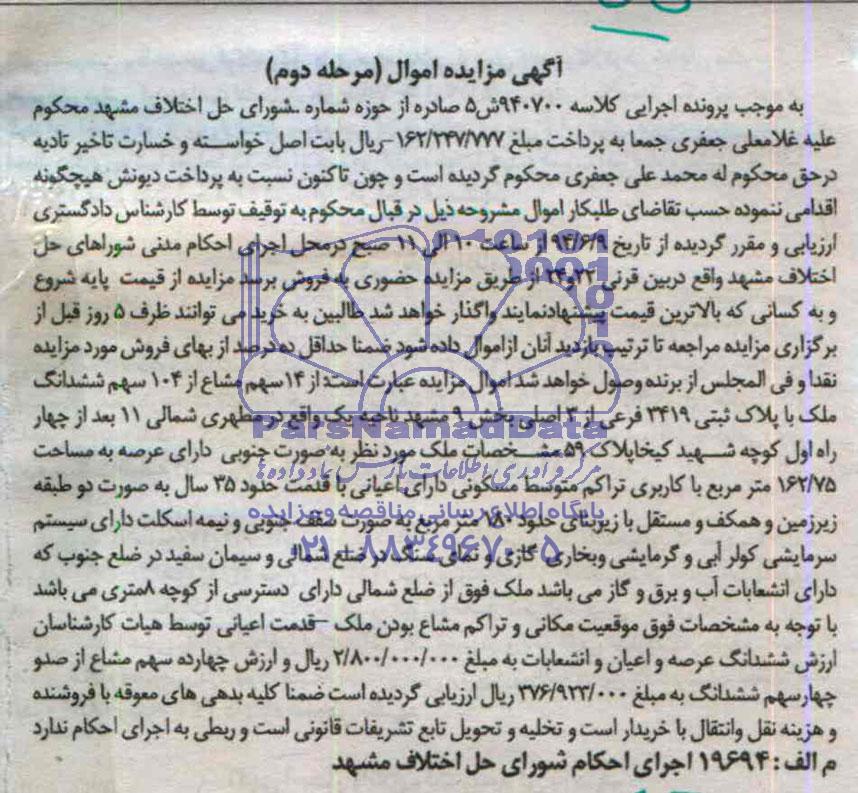 آگهی مزایده اموال (مرحله دوم)
به موجب پرونده اجرایی کلاسه ۹۴۰۷۰۰ش۵ صادره از حوزه شماره -شورای حل اختلاف مشهد محکوم
علیه غلامعلی جعفری جمعا به پرداخت مبلغ ۱۶۲/۲۴۷/۷۷۷-ریال بابت اصل خواسته و خسارت تاخیر تادیه
درحق محکوم له محمد علی جعفری محکوم گردیده است و چون تاکنون نسبت به پرداخت دیونش هیچگونه
اقدامی ننموده حسب تقاضای طلبکار اموال مشروحه ذیل در قبال محکوم به توقیف توسط کارشناس دادگستری
ارزیابی و مقرر گردیده از تاریخ ۹۴/۶/۹ از ساعت ۱۰ الی ۱۱ صبح درمحل اجرای احکام مدنی شوراهای حل
اختلاف مشهد واقع دربین قرنی ۲۲و۲۴ از طریق مزایده حضوری به فروش برسد مزایده از قیمت پایه شروع
و به کسانی که بالاترین قیمت پیشنهادنمایند واگذار خواهد شد طالبین به خرید می توانند ظرف ۵ روز قبل از
برگزاری مزایده مراجعه تا ترتیب بازدید آنان ازاموال داده شود ضمنا حداقل ده درصد از بهای فروش مورد مزایده
نقدا و فی المجلس از برنده وصول خواهد شد اموال مزایده عبارت است: از ۱۴سهم مشاع از ۱۰۴ سهم ششدانگ
ملک با پلاک ثبتی ۳۴۱۹ فرعی از ۳ اصلی بخش ۹ مشهد ناحیه یک واقع در مطهری شمالی ۱۱ بعد از چهار
راه اول کوچه شهید کیخاپلاک ۵۹ مشخصات ملک مورد نظر به صورت جنوبی دارای عرصه به مساحت
۱۶۲/۷۵ متر مربع با کاربری تراکم متوسط مسکونی دارای اعیانی با قدمت حدود ۳۵ سال به صورت دو طبقه
زیرزمین و همکف و مستقل با زیربنای حدود ۱۸۰ متر مربع به صورت سقف جنوبی و نیمه اسکلت دارای سیستم
سرمایشی کولر آبی و گرمایشی وبخاری گازی و نمای سنگ در ضلع شمالی و سیمان سفید در ضلع جنوب که
دارای انشعابات آب و برق و گاز می باشد ملک فوق از ضلع شمالی دارای دسترسی از کوچه ۸متری می باشد
با توجه به مشخصات فوق موقعیت مکانی و تراکم مشاع بودن ملک –قدمت اعیانی توسط هیات کارشناسان
ارزش ششدانگ عرصه و اعیان و انشعابات به مبلغ ۲/۸۰۰/۰۰۰/۰۰۰ ریال و ارزش چهارده سهم مشاع از صدو
چهارسهم ششدانگ به مبلغ ۳۷۶/۹۲۳/۰۰۰ ریال ارزیابی گردیده است ضمنا کلیه بدهی های معوقه با فروشنده
و هزینه نقل وانتقال با خریدار است و تخلیه و تحویل تابع تشریفات قانونی است و ربطی به اجرای احکام ندارد
م الف : ۱۹۶۹۴ اجرای احکام شورای حل اختلاف مشهد
ParsNamadData
مرکز فرآوری اطلاعات پارس نماد داده ها
پایگاه اطلاع رسانی مناقصه و مزایده
۰۲۱-۸۸۳۴۹۶۷۰-۵